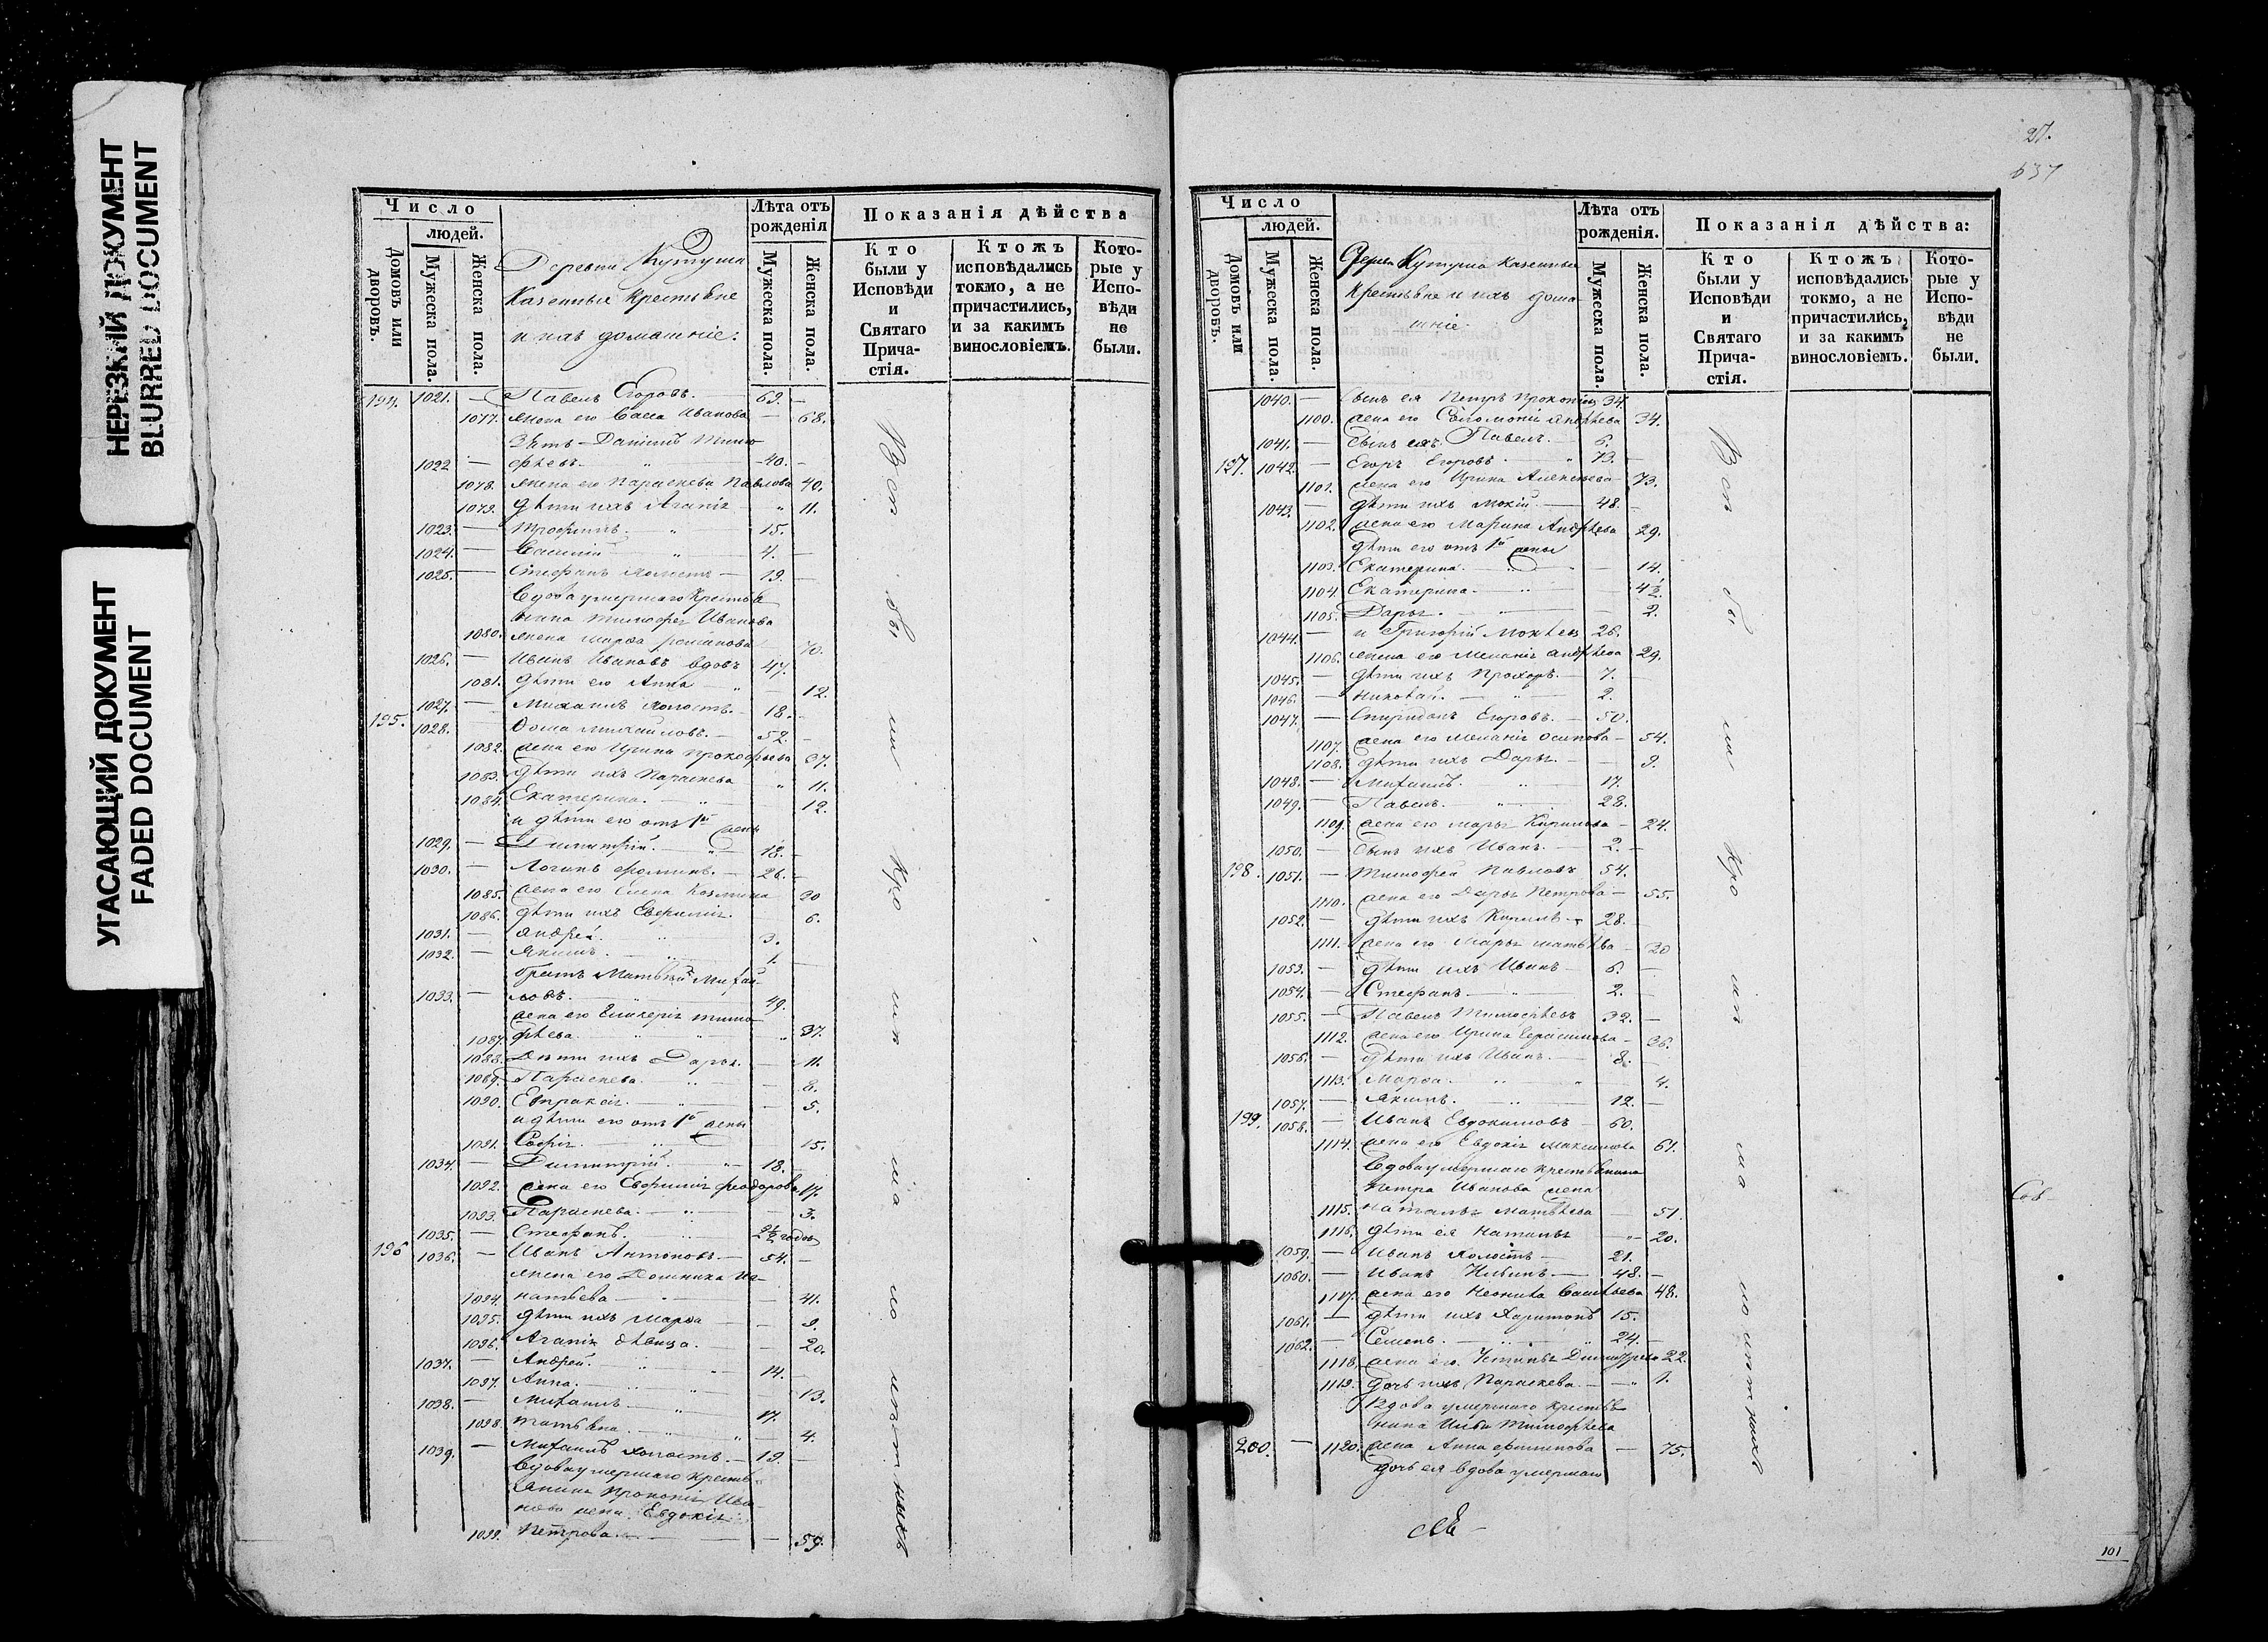 НЕРЕЗКИЙ ДОКУМЕНТ
BLURRED DOCUMENT
УГАСАЮЩИЙ ДОКУМЕНТ
FADED DOCUMENT
Число
людей.
Домовъ или дворовъ.
Мужеска пола.
Женска пола.
Деревни
Казенные Крестьяне
и ихъ домашніе.
Лѣта отъ рожденія
Мужеска пола.
Женска пола.
Показанія дѣйства
Кто были у Исповѣди и Святаго Прича-стія.
Ктожъ исповѣдались токмо, а не причастились, и за какимъ винословіемъ.
Кото-рые у Испо-вѣди не были.
194. 1021. — Павелъ Егоровъ. — 69. —
1077. жена его Васса Иванова — 68.
Зять Даніилъ Тимо
1022 — фѣевъ. — 40. —
1078. жена его Параскева Павлова 40.
1079. дѣти ихъ Агапія — 11.
1023. — Трофимъ. " 15.
1024. — Василій " 4. —
1025. — Стефанъ холостъ — 19. —
Вдова умершаго Крестья
нина Тимофея Иванова
1080. жена Марѳа 70.
1026. — Иванъ Ивановъ вдовъ 47.
1081. дѣти его Анна — 12.
1027. — Михаилъ холостъ. — 18. —
195. 1028. Ѳома Михайловъ. — 52. —
1082. жена его Ирина Прокофьева 37.
1083. дѣти ихъ Параскева " 11.
1084. Екатерина. — 12.
и дѣти его отъ 1й жены
1029. — Димитрій. — 18. —
1030. — Логинъ Ѳоминъ. — 26. —
1085. жена его Елена Козмина 30
1086. дѣти ихъ Евфимія. — 6.
1031. — Андрей. — 3.
1032. — Якимъ. — 1.
братъ Матвѣй Михай
1033. — ловъ. — 49.
жена его Тимо
1087. фѣева. " 37.
1088. Дѣти ихъ Дарья. — 11.
1089. Параскева. — 8.
1090. Евпраксія. — 5.
и дѣти его отъ 1й жены
1091. Софія. — 15.
1034. — Димитрій. — 18. —
1092. жена его Евфимія Феодорова 17.
1093. Параскева. — 3.
1035. — Стефанъ. 2½ года
196 1036. — Иванъ Антоновъ. — 54. —
жена его Домника Иг-
1094. натьева — 41.
1095. дѣти ихъ Марѳа — 9.
1096. Агапія дѣвица. — 20.
1037. — Андрей. 14. —
1097. Анна. — 13.
1038. — Михаилъ — 17.
1098. Татьяна. — 4.
1039. — Михаилъ холостъ. — 19. —
Вдова умершаго Кресть-
янина Прокопія Ива-
нова жена Евдокія
1099. Петрова. — 59.
Всѣ бы ли Кро мѣ ма ло лѣтныхъ
27.
637
Число
людей.
Домовъ или дворовъ.
Мужеска пола.
Женска пола.
Казенные
Крестьяне и ихъ дома
шніе.
Лѣта отъ рожденія.
Мужеска пола.
Женска пола.
Показанія дѣйства:
Кто были у Исповѣди и Святаго Прича-стія.
Ктожъ исповѣдались токмо, а не причастились, и за какимъ винословіемъ.
Кото-рые у Испо-вѣди не были.
1040. — Сынъ ея Петръ Прокопіев 34.
1100. жена его Соломонія Андрѣева 34.
1041. — Сынъ ихъ Павелъ. — 6.
197. 1042. — Егоръ Егоровъ. — 73. —
1101. жена его Ирина Алексѣева — 73.
1043. — дѣти ихъ Мокій. — 48. —
1102. жена его Марина Андрѣева 29.
дѣти его отъ 1й жены
1103. Екатерина. — 14.
1104. Екатерина. — 4½.
1105. Дарья. — 2.
1044. — и Григорій Мокѣев 26.
1106. жена его Меланія Андрѣева 29.
1045. — дѣти ихъ Прохоръ. — 7. —
1046. — Николай. — 2.
1047. — Спиридонъ Егоровъ. — 50. —
1107. жена его Меланія Осипова — 54.
1108. дѣти ихъ Дарья. — 9.
1048. — Михаилъ. — 17.
1049. — Павелъ. — 28.
1109. жена его Марья Кирилова — 24.
1050. — Сынъ ихъ Иванъ. — 2. —
198. 1051. — Тимофей Павловъ 54.
1110. жена его Дарья Петрова — 55.
1052. — дѣти ихъ — 28. —
1111. жена его Марья Матвѣва — 30
1053. — дѣти ихъ Иванъ — 6. —
1054. — Стефанъ. — 2. —
1055. — Павелъ Тимофѣевъ 32. —
1112. жена его Ирина Герасимова — 36.
1056. — дѣти ихъ Иванъ. — 8. —
1113. Марѳа. — 4.
1057. — Якимъ. — 12. —
199. 1058. — Иванъ Евдокимовъ — 60.
1114. жена его Евдокія Максимова 61.
Вдова умершаго крестьянина
Петра Иванова жена
1115. Наталья Матвѣева — 51.
1116. дѣти ея Наталья — 20.
1059. — Иванъ холостъ — 21.
1060. — Иванъ — 48. —
1117. жена его Васильева 48.
1061. — дѣти ихъ Харитонъ 15.
1062. — Семенъ. — 24. —
1118. жена его Устинья Димитріева 22.
1119. дочь ихъ Параскева. — 1.
Вдова умершаго крестья
нина Ильи Тимофѣева
200. — 1120. жена Анна Филипова — 75.
дочь ея вдова умершаго
Всѣ бы ли Кро мѣ ма ло лѣтныхъ
101